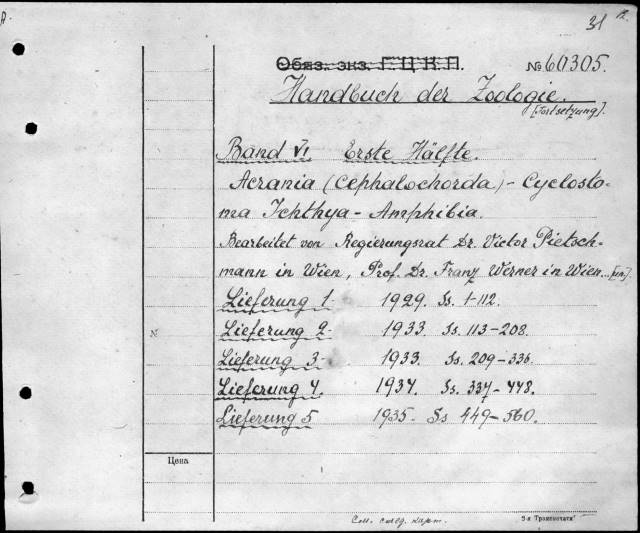 31 a.
Обяз. экз. Г.Ц.К.П. № 60305.
Handbuch der Zoologie.
[Fortsetzung].
Band VI. Erste Hälfte.
Acrania (Cephalochorda) - Cyclosto-
ma Ichthya - Amphibia.
Bearbeitet von Regierungsrat Dr. Victor Pietsch-
mann in Wien, Prof. Dr. Franz Werner in Wien...[un].
Lieferung 1. 1929. Ss. 1-112.
Lieferung 2. 1933. Ss. 113-208.
N
Lieferung 3. 1933. Ss. 209-336.
Lieferung 4. 1934. Ss. 337-448.
Lieferung 5 1935. Ss 449-560.
Цена
См. след. карт.
3-я Транспечати